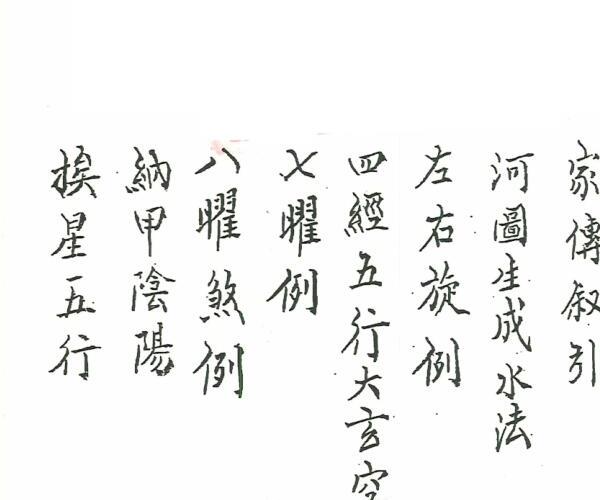 家傳叙引
河圖生成水法
左右旋例
四經五行大玄空
七曜例
八曜煞例
納甲陰陽
挨星五行